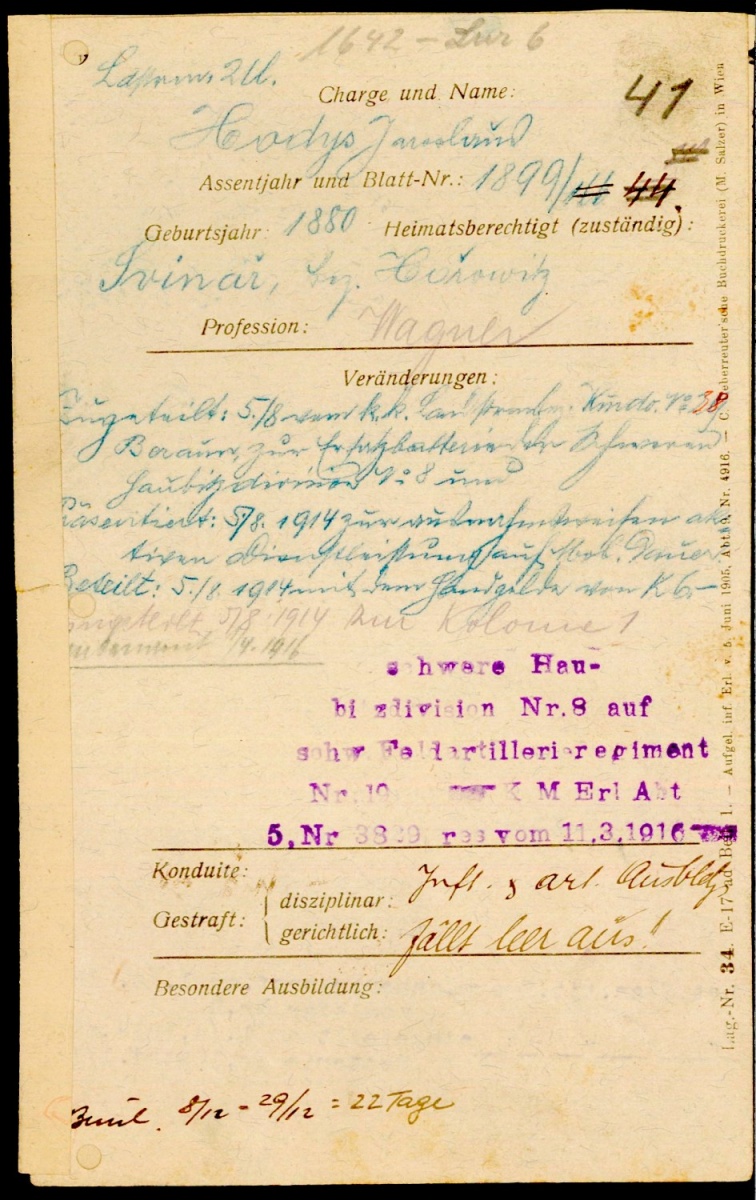 1642 - Lur 6
Charge und Name: 41
Hodys Jaroslaus
Assentjahr und Blatt-Nr.: 1899/44 44.
Geburtsjahr: 1880 Heimatsberechtigt (zuständig):
Svinař, bez. Hořowitz
Profession: Wagner
Veränderungen:
Zugeteilt: 5./8 vom k.k. Landsturmbez. Kmdo. No 38
Beraun, zur Ersatzbatterie der schweren
Haubitzdivision No 8 und
Präsentiert: 5/8. 1914 zur ausnahmsweisen ak-
tiven Dienstleistung auf Mob. Dauer
Beteilt: 5./8. 1914 mit dem Handgelde von K 6.-
5/8. 1914 zur Kolonne 1
1/4. 1916
schwere Hau-
bitzdivision Nr.8 auf
schw. Feldartillerieregiment
Nr. 19 K M Erl Abt
5, Nr 3829 res vom 11.3.1916
Konduite:
Gestraft: disziplinar: Inft. & art. Ausbldg
gerichtlich: fällt leer aus!
Besondere Ausbildung:
8/12 - 29/12 = 22 Tage
Lag.-Nr. 34. E-17 ad Beil. 1. — Aufgel. inf. Erl. v. 5. Juni 1905, Abt. 9, Nr. 4916. — C. Ueberreuter'sche Buchdruckerei (M. Salzer) in Wien